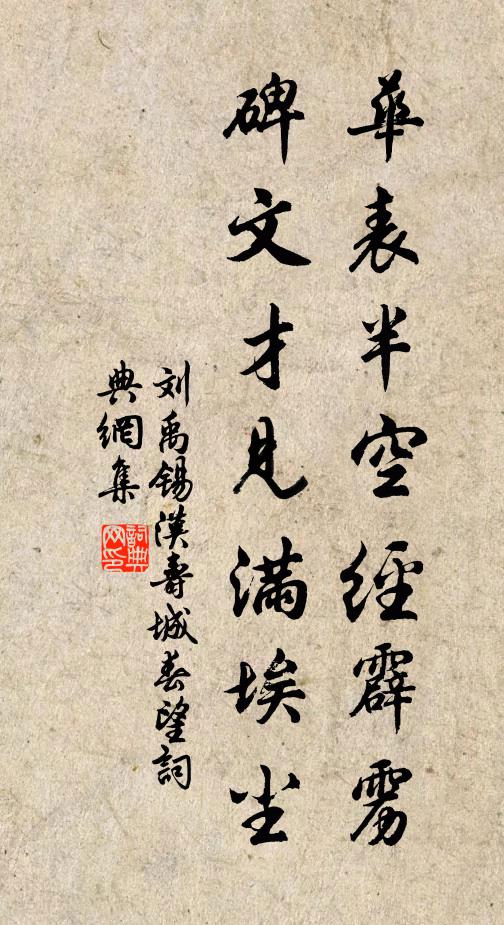 華表半空經霹雳
碑文才見滿埃尘
刘禹锡漢壽城春望詞
典網集
詞典
网印